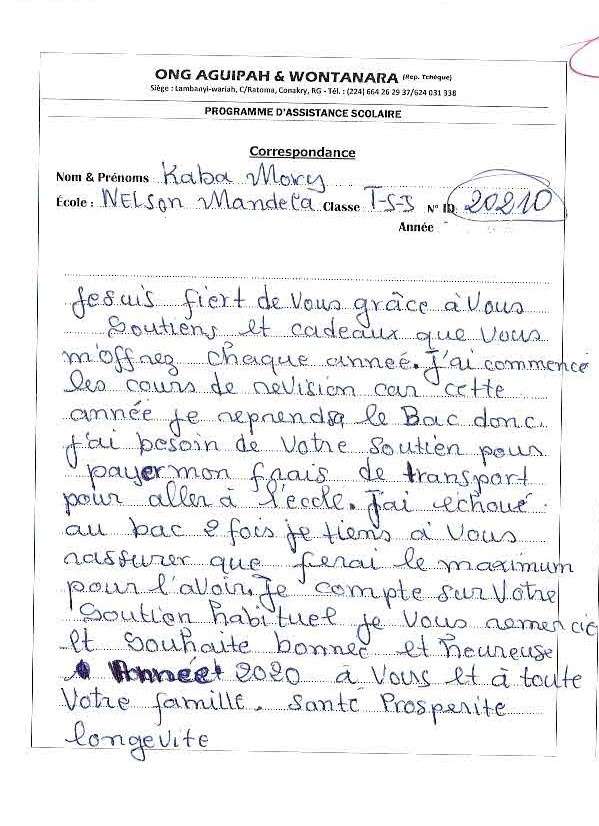 ONG AGUIPAH & WONTANARA (Rep. Tchèque)
Siège : Lambanyi-wariah, C/Ratoma, Conakry, RG - Tél. : (224) 664 26 29 37/624 031 338
PROGRAMME D'ASSISTANCE SCOLAIRE
Correspondance
Nom & Prénoms Kaba Mory
École : NELSON Mandela Classe T-S-S N° ID 20210
Année
Je suis fiert de Vous grâce à Vous
Soutiens et cadeaux que Vous
m'offrez chaque année. J'ai commencé
les cours de revision car cette
année je reprends le Bac donc.
j'ai besoin de Votre Soutien pour
payer mon frais de transport
pour aller à l'école. J'ai echoué
au bac 2 fois je tiens à Vous
rassurer que ferai le maximum
pour l'avoir. Je compte sur Votre
Soutien habituel je Vous remercie
et souhaite bonnec et heureuse
Année 2020 à Vous et à toute
Votre famille. Santé Prosperite
longevite